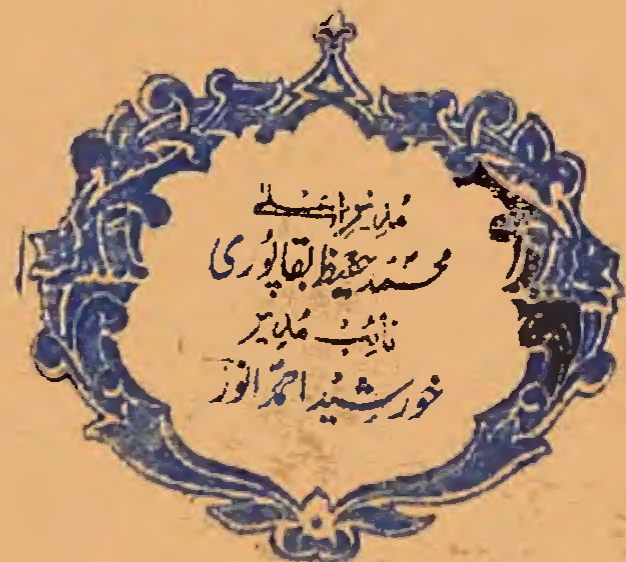 مُدیرِ اعلیٰ
محمد حفیظ بقاپُوری
نائب مُدیر
خورشید احمد انور